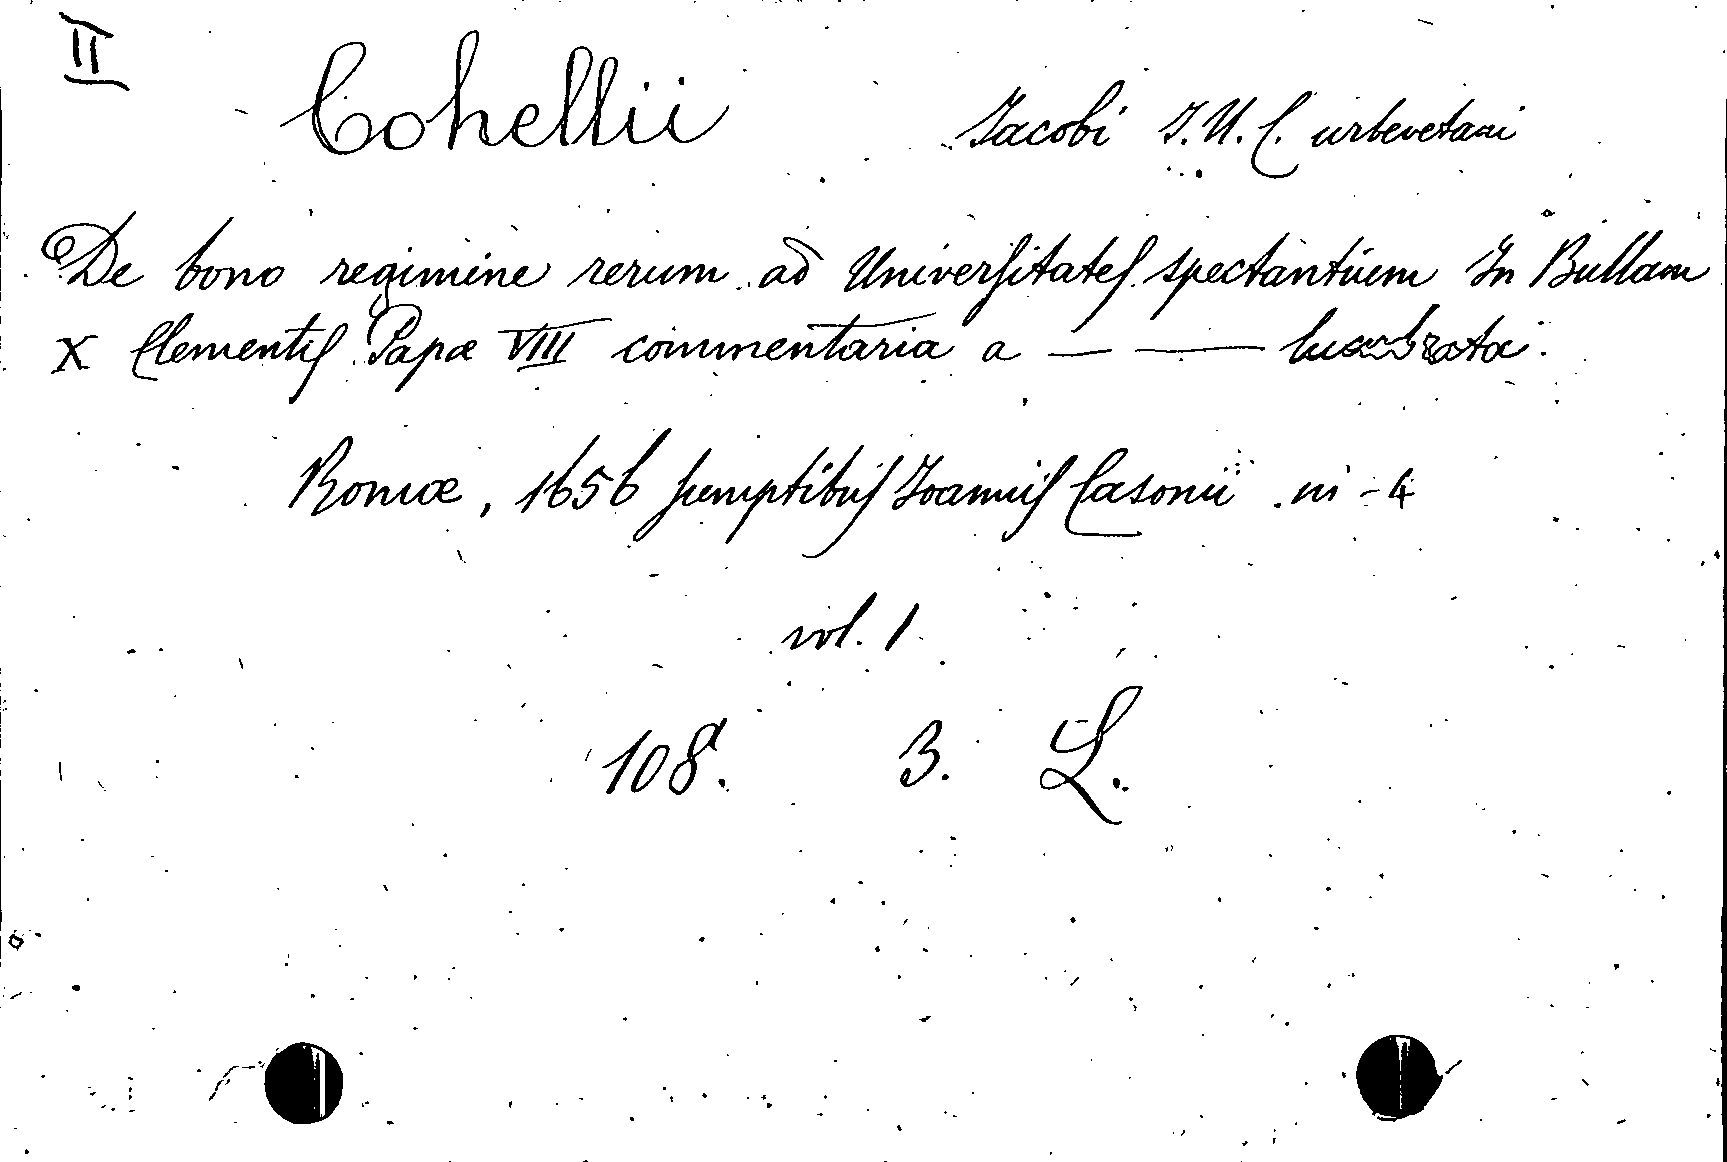 II
Cohellii Jacobi J.U.C. urbevetani
De bono regimine rerum ad Universitates spectantium In Bullam
X Clementis Papæ VIII commentaria a — — lucubrata.
Romæ, 1656 sumptibus Joannis Casonii in-4
vol. 1
108. 3. L.